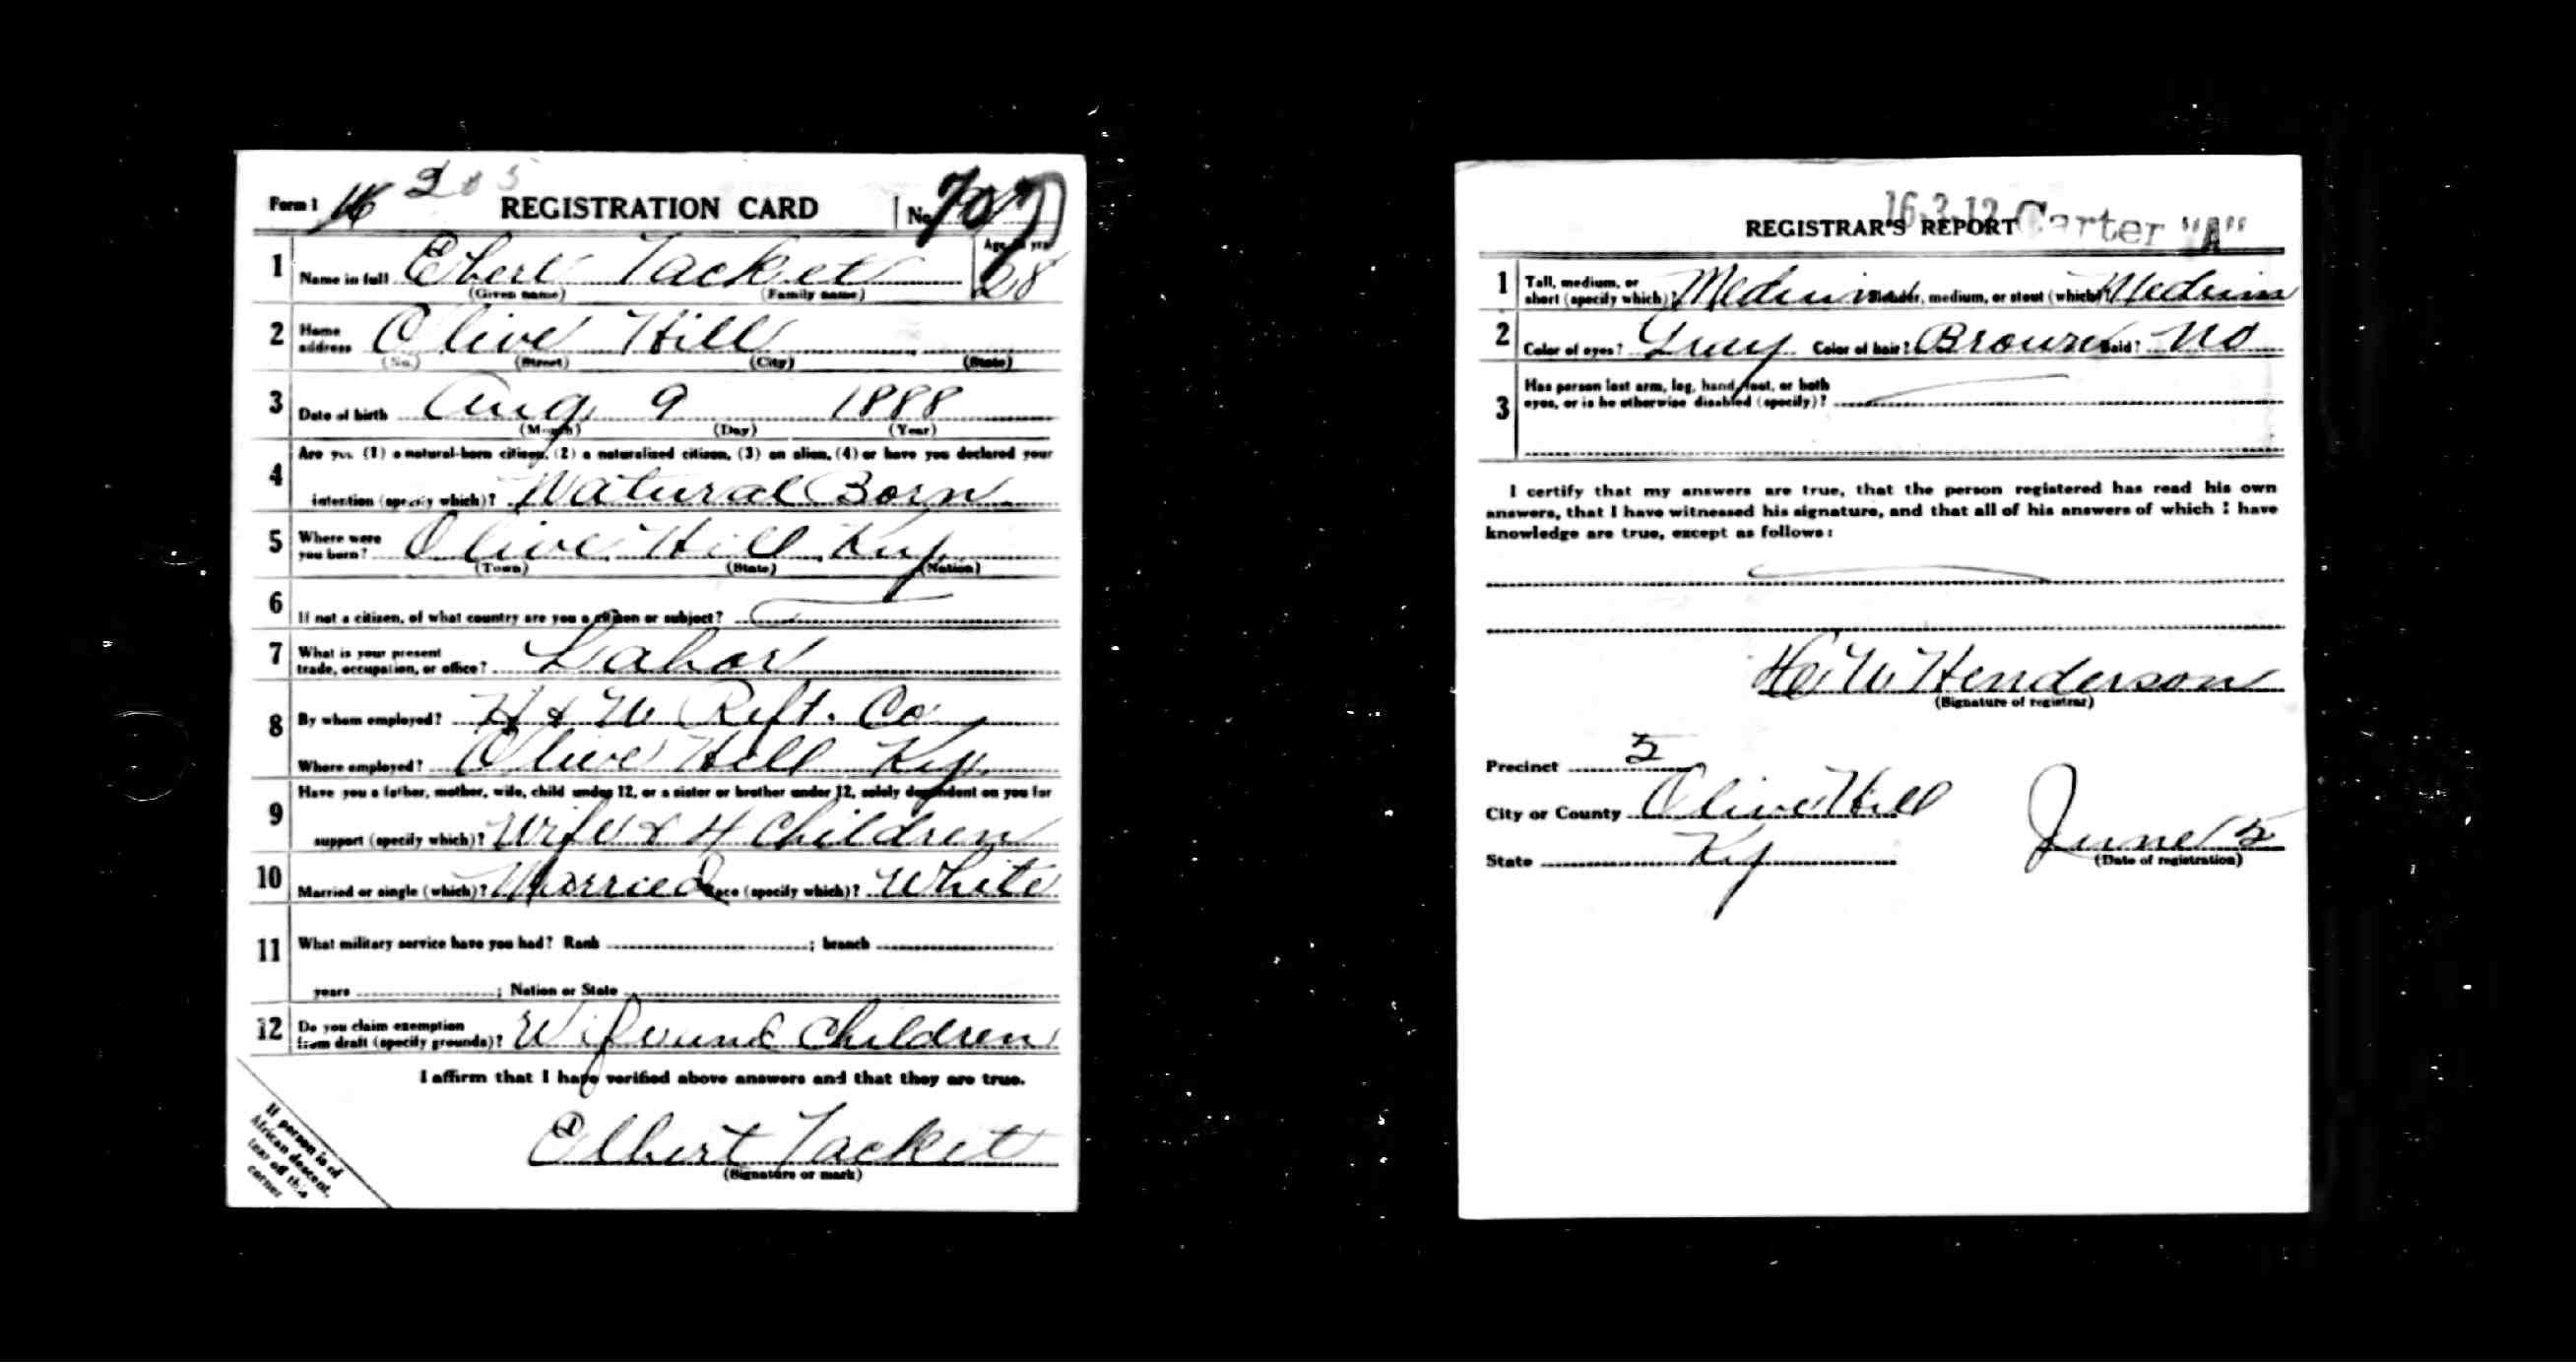 Form 1 REGISTRATION CARD No. 707
1 Name in full Ebert Tacket Age in yrs 28
(Given name) (Family name)
2 Home address Olive Hill
(No.) (Street) (City) (State)
3 Date of birth Aug 9 1888
(Month) (Day) (Year)
4 Are you (1) a natural-born citizen, (2) a naturalized citizen, (3) an alien, (4) or have you declared your
intention (specify which)? Natural Born
5 Where were you born? Olive Hill Ky
(Town) (State) (Nation)
6 If not a citizen, of what country are you a citizen or subject?
7 What is your present
trade, occupation, or office? Labor
8 By whom employed? H & W Reft. Co
Where employed? Olive Hill Ky.
9 Have you a father, mother, wife, child under 12, or a sister or brother under 12, solely dependent on you for
support (specify which)? Wife & 4 Children
10 Married or single (which)? Married Race (specify which)? White
11 What military service have you had? Rank ; branch
years ; Nation or State
12 Do you claim exemption
from draft (specify grounds)? Wife and Children
I affirm that I have verified above answers and that they are true.
Elbert Tacket
(Signature or mark)
If person is of
African descent,
tear off this
corner
16-3-12 Carter "A"
REGISTRAR'S REPORT
1 Tall, medium, or
short (specify which)? Medium Slender, medium, or stout (which)? Medium
2 Color of eyes? Grey Color of hair? Brown Bald? No
3 Has person lost arm, leg, hand, foot, or both
eyes, or is he otherwise disabled (specify)?
I certify that my answers are true, that the person registered has read his own
answers, that I have witnessed his signature, and that all of his answers of which I have
knowledge are true, except as follows:
H. W. Henderson
(Signature of registrar)
Precinct 5
City or County Olive Hill
State Ky
June 5
(Date of registration)